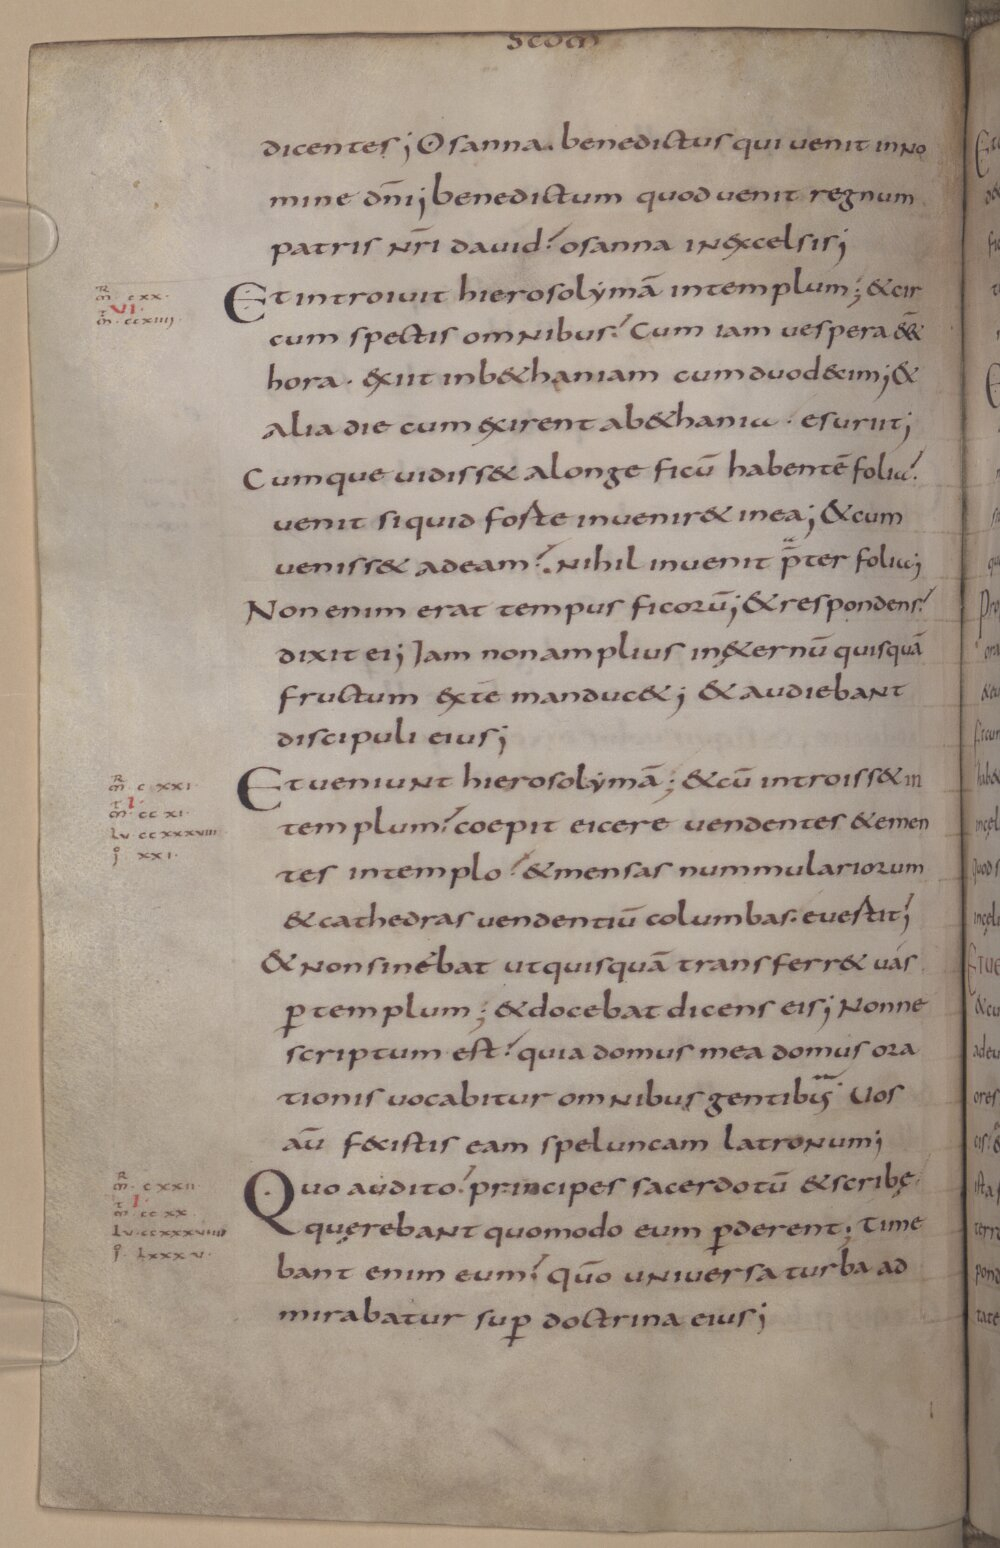 Scdm
dicentes; Osanna. benedictus qui uenit in no
mine dñi; benedictum quod uenit regnum
patris nr̄i dauid. osanna in excelsis;
mr̄ cxx.
VI
mt̄ ccxiiii.
Et introiuit hierosolymā in templum; & cir
cum spectis omnibus. Cum iam uespera e̅&
hora. exiit in b&haniam cum duodecim; &
alia die cum exirent a b&hania. esuriit;
Cumque uidiss& a longe ficū habentē folia.
uenit si quid forte inuenir& in ea; & cum
ueniss& ad eam. nihil inuenit p̄ter folia;
Non enim erat tempus ficorū; & respondens.
dixit ei; Iam non amplius in &ernū quisquā
fructum ex te manduc&; & audiebant
discipuli eius;
mr̄ cxxi.
I
mt̄ ccxi.
lu ccxxxviii
io xxi.
Et ueniunt hierosolymā; & cū introiss& in
templum. coepit eicere uendentes & emen
tes in templo. & mensas nummulariorum
& cathedras uendentiū columbas. euertit;
& non sinebat ut quisquā transferr& uas
p templum; & docebat dicens eis; Nonne
scriptum est. quia domus mea domus ora
tionis uocabitur omnibus gentibus; Uos
aū fecistis eam speluncam latronum;
mr̄ cxxii
I
mt̄ ccxx
lu ccxxxviiii
io lxxxv.
Quo audito. principes sacerdotū & scribę.
quęrebant quomodo eum pderent; time
bant enim eum. qūo uniuersa turba ad
mirabatur sup doctrina eius;